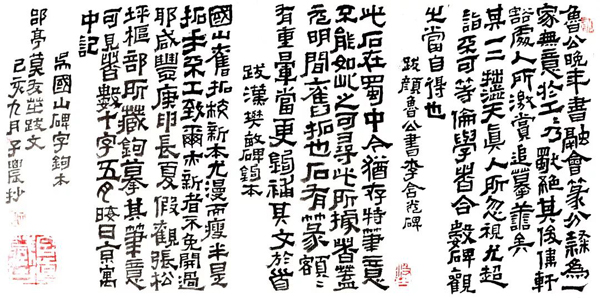 魯公晚年書融會篆分隸爲一
家無意於工〻乃獨絕其後儔軒
豁處人所激賞追摹蓋矣
其一二拙澁天真人所忽視尤超
詣至可等倫學者合數碑觀
之當自得也
跋顏魯公書李含光碑
此石在蜀中今猶存特筆意
不能如此之可尋此所據者蓋
元明間舊拓也石有篆額〻
有重暈當更鉤補其文於首
跋漢樊敏碑鉤本
國山舊拓校新本尤漫而瘦半是
拓手不工致爾未新者不免開過
耶咸豐庚申長夏假觀張松
坪樞部所藏鉤摹其筆意
可見者數十字五月晦日京寓
中記
吳國山碑字鉤本
郘亭莫友芝跋文
己亥九月子農抄